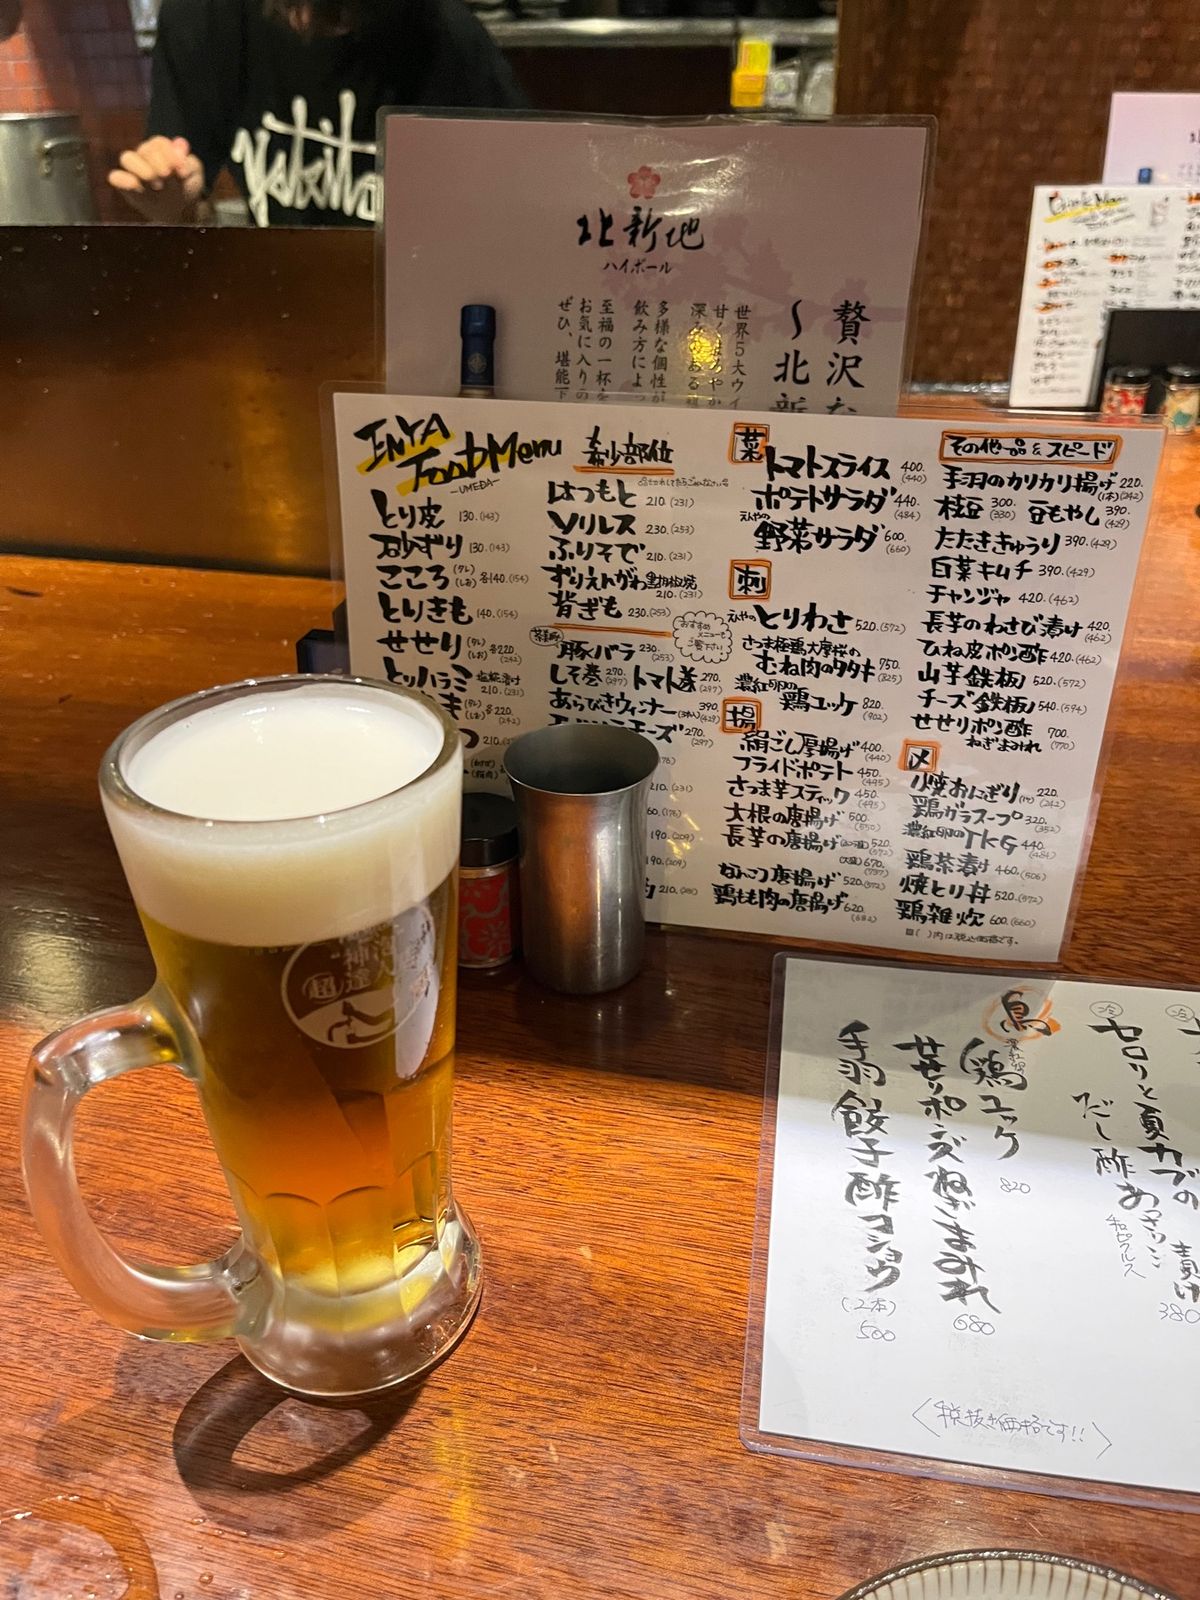 yakito
北新地
ハイボール
贅沢な
～北新
世界5大ウイ
甘くまろやか
深みのある
多様な個性が
飲み方によっ
至福の一杯を
お気に入りの
ぜひ、堪能下
ENYA
Food Menu
-UMEDA-
とり皮 130.(143)
砂ずり 130.(143)
こころ (タレ)(しお) 各140.(154)
とりきも 140.(154)
せせり (タレ)(しお) 各220.(242)
とりハラミ 塩糀漬け 210.(231)
き (タレ)(しお) 各220.(242)
つ 210.
希少部位
はつもと 210.(231)
ソリレス 230.(253)
ふりそで 210.(231)
ずりえんがわ 黒胡椒焼 210.(231)
背ぎも 230.(253)
おすすめメニューもご覧下さい
豚バラ 230.(253)
しそ巻 270.(297) トマト巻 270.(297)
あらびきウィンナー 390.(429)
チーズ 270.(297)
210.(231)
60.(176)
190.(209)
190.(209)
210.(231)
菜
トマトスライス 400.(440)
ポテトサラダ 440.(484)
えんやの 野菜サラダ 600.(660)
刺
えんやの とりわさ 520.(572)
さつま極鶏大摩桜の
むね肉のタタキ 750.(825)
濃紅卵の 鶏ユッケ 820.(902)
揚
絹ごし厚揚げ 400.(440)
フライドポテト 450.(495)
さつま芋スティック 450.(495)
大根の唐揚げ 500.(550)
長芋の唐揚げ 520.(572)
670.(737)
なんこつ唐揚げ 520.(572)
鶏もも肉の唐揚げ 620.(682)
その他一品&スピード
手羽のカリカリ揚げ 220.(1本)(242)
枝豆 300.(330) 豆もやし 390.(429)
たたききゅうり 390.(429)
白菜キムチ 390.(429)
チャンジャ 420.(462)
長芋のわさび漬け 420.(462)
ひね皮ポン酢 420.(462)
山芋鉄板 520.(572)
チーズ鉄板 540.(594)
せせりポン酢 700.(770)
ねぎまみれ
〆
焼おにぎり 220.(242)
鶏ガラスープ 320.(352)
濃紅卵のTKG 440.(484)
鶏茶漬け 460.(506)
焼とり丼 520.(572)
鶏雑炊 600.(660)
( )内は税込価格です。
Drink Menu
超
神達
鳥
濃紅卵 鶏ユッケ 820
せせりポンズねぎまみれ 680
手羽餃子酢コショウ (2本) 500
セロリと夏カブの
だし酢あっさり
和ピクルス
漬け
380
〈税抜き価格です!!〉